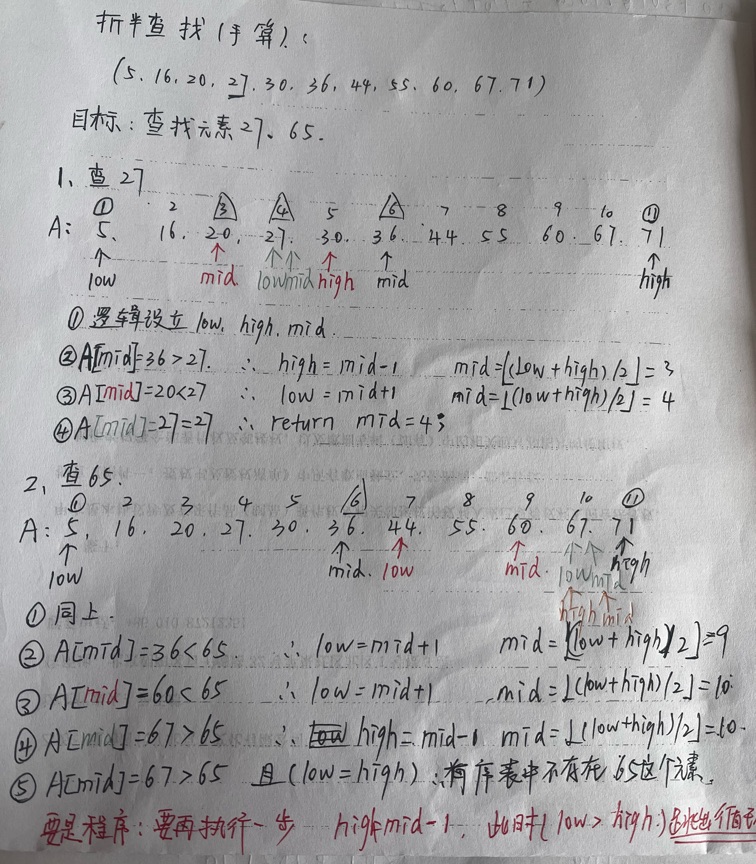 折半查找(手算):
(5、16、20、27、30、36、44、55、60、67、71)
目标:查找元素27、65.
1、查27
① 2 3 4 5 6 7 8 9 10 ⑪
A: 5、 16、 20、 27、 30、 36、 44 55 60、 67、 71
low mid low mid high mid high
①逻辑设立 low、high、mid.
②A[mid]=36>27. ∴ high=mid-1 mid=⌊(low+high)/2⌋=3
③A[mid]=20<27 ∴ low=mid+1 mid=⌊(low+high)/2⌋=4
④A[mid]=27=27 ∴ return mid=4;
2、查65.
① 2 3 4 5 6 7 8 9 10 ⑪
A: 5、 16、 20、 27、 30、 36、 44、 55、 60、 67、 71
low mid. low mid. low mid high
high mid
①同上.
②A[mid]=36<65. ∴ low=mid+1 mid=⌊(low+high)/2⌋=9
③A[mid]=60<65 ∴ low=mid+1 mid=⌊(low+high)/2⌋=10.
④A[mid]=67>65 ∴ high=mid-1 mid=⌊(low+high)/2⌋=10.
⑤A[mid]=67>65 且(low=high) ∴有序表中不存在65这个元素.
要是程序:要再执行一步 high=mid-1, 此时(low>high)